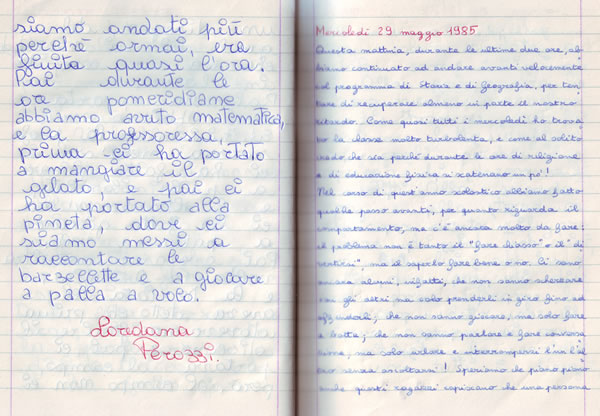 siamo andati più
perché ormai, era
finita quasi l'ora.
Poi durante le
ore pomeridiane
abbiamo avuto matematica,
e la professoressa,
prima ci ha portato
a mangiare il
gelato, e poi ci
ha portato alla
pineta, dove ci
siamo messi a
raccontare le
barzellette e a giocare
a palla a volo.
Loredana
Perozzi.
Mercoledì 29 maggio 1985
Questa mattina, durante le ultime due ore, ab
biamo continuato ad andare avanti velocemente
col programma di Storia e di Geografia, per ten
tare di recuperare almeno in parte il nostro
ritardo. Come quasi tutti i mercoledì ho trova
to la classe molto turbolenta, e come al solito
credo che sia perché durante le ore di religione
e di educazione fisica si scatenano un po'!
Nel corso di quest'anno scolastico abbiamo fatto
qualche passo avanti, per quanto riguarda il
comportamento, ma c'è ancora molto da fare:
il problema non è tanto il "fare chiasso" o il "di
vertirsi", ma il saperlo fare bene o no. Ci sono
ancora alcuni, infatti, che non sanno scherzare
con gli altri ma solo prenderli in giro fino ad
offenderli; che non sanno giocare, ma solo fare
a botte; che non sanno parlare e fare conversa
zione, ma solo urlare e interrompersi l'un l'al
tro senza ascoltarsi! Speriamo che piano piano
anche questi ragazzi capiscano che una persona